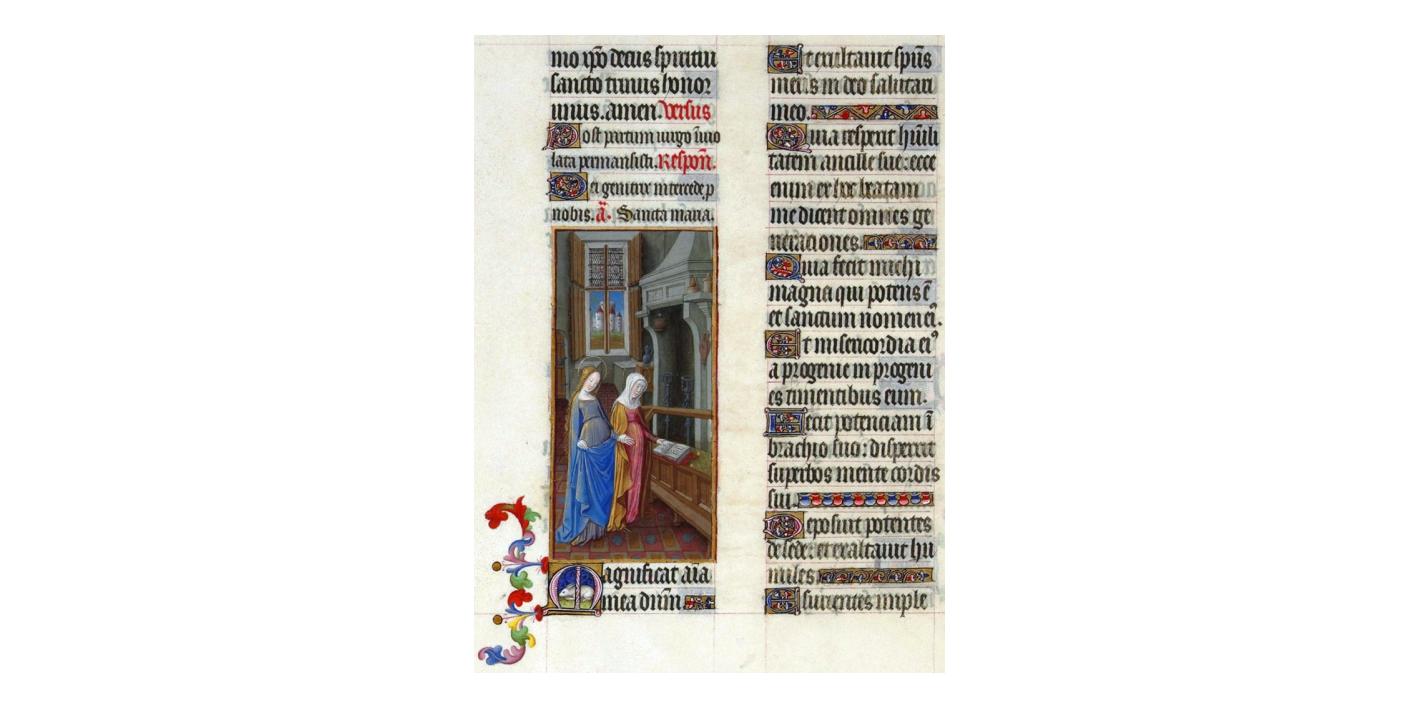 mo xp̄o decus spiritui
sancto trinus honor
unus. amen. Versus
Post partum uirgo īuio
lata permansisti. Respoñ.
Dei genitrix intercede p
nobis. ā. Sancta maria.
Magnificat aīa
mea dn̄m
Et exultauit sp̄us
meus in deo salutari
meo.
Quia respexit hūili
tatem ancille sue: ecce
enim ex hoc beatam
me dicent omnes ge
neraciones.
Quia fecit michi
magna qui potens ē
et sanctum nomen ei⁹.
Et misericordia ei⁹
a progenie in progeni
es timentibus eum.
Fecit potenciam ī
brachio suo: dispersit
superbos mente cordis
sui.
Deposuit potentes
de sede: et exaltauit hu
miles
Esurientes imple